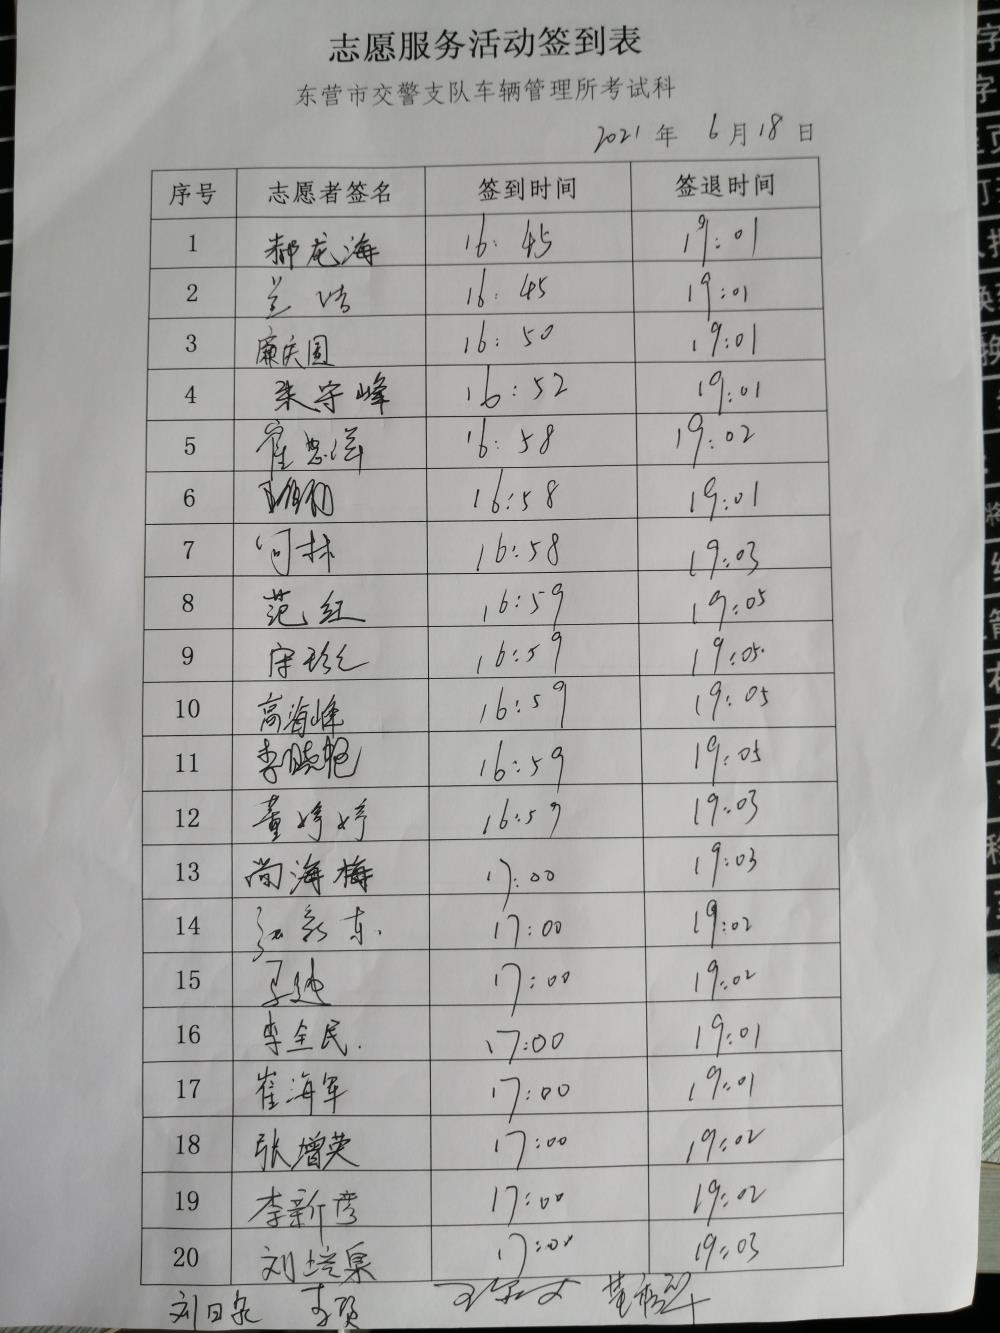 志愿服务活动签到表
东营市交警支队车辆管理所考试科
2021 年 6 月 18 日
序号 志愿者签名 签到时间 签退时间
1 郝龙海 16:45 19:01
2 兰洁 16:45 19:01
3 廉庆国 16:50 19:01
4 朱守峰 16:52 19:01
5 崔忠洋 16:58 19:02
6 16:58 19:01
7 何林 16:58 19:03
8 范红 16:59 19:05
9 宋珍 16:59 19:05
10 高海峰 16:59 19:05
11 李晓艳 16:59 19:05
12 董婷婷 16:59 19:03
13 尚海梅 17:00 19:03
14 东 17:00 19:02
15 17:00 19:02
16 李全民 17:00 19:01
17 崔海军 17:00 19:01
18 张增英 17:00 19:02
19 李新彦 17:00 19:02
20 刘培泉 17:00 19:03